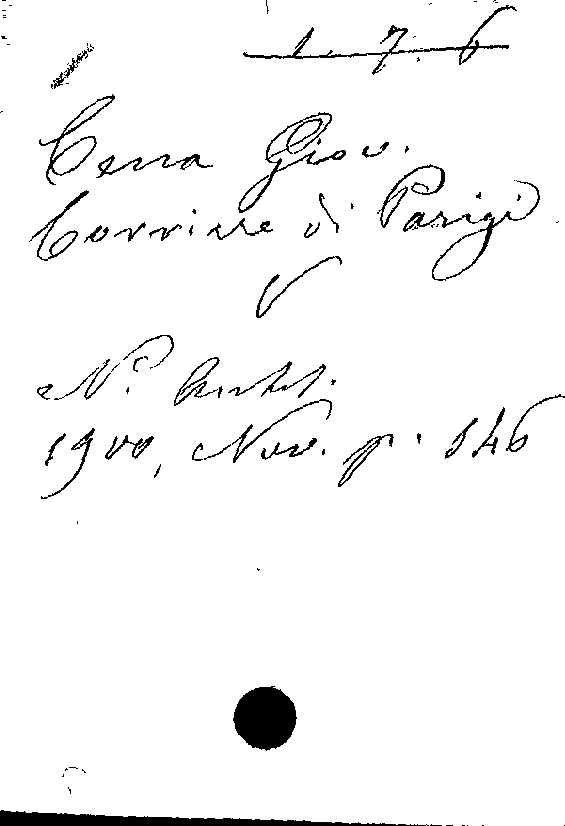 1. 7. 6
Cena Giov.
Corriere di Parigi
V
N. Antol.
1900, Nov. p. 146